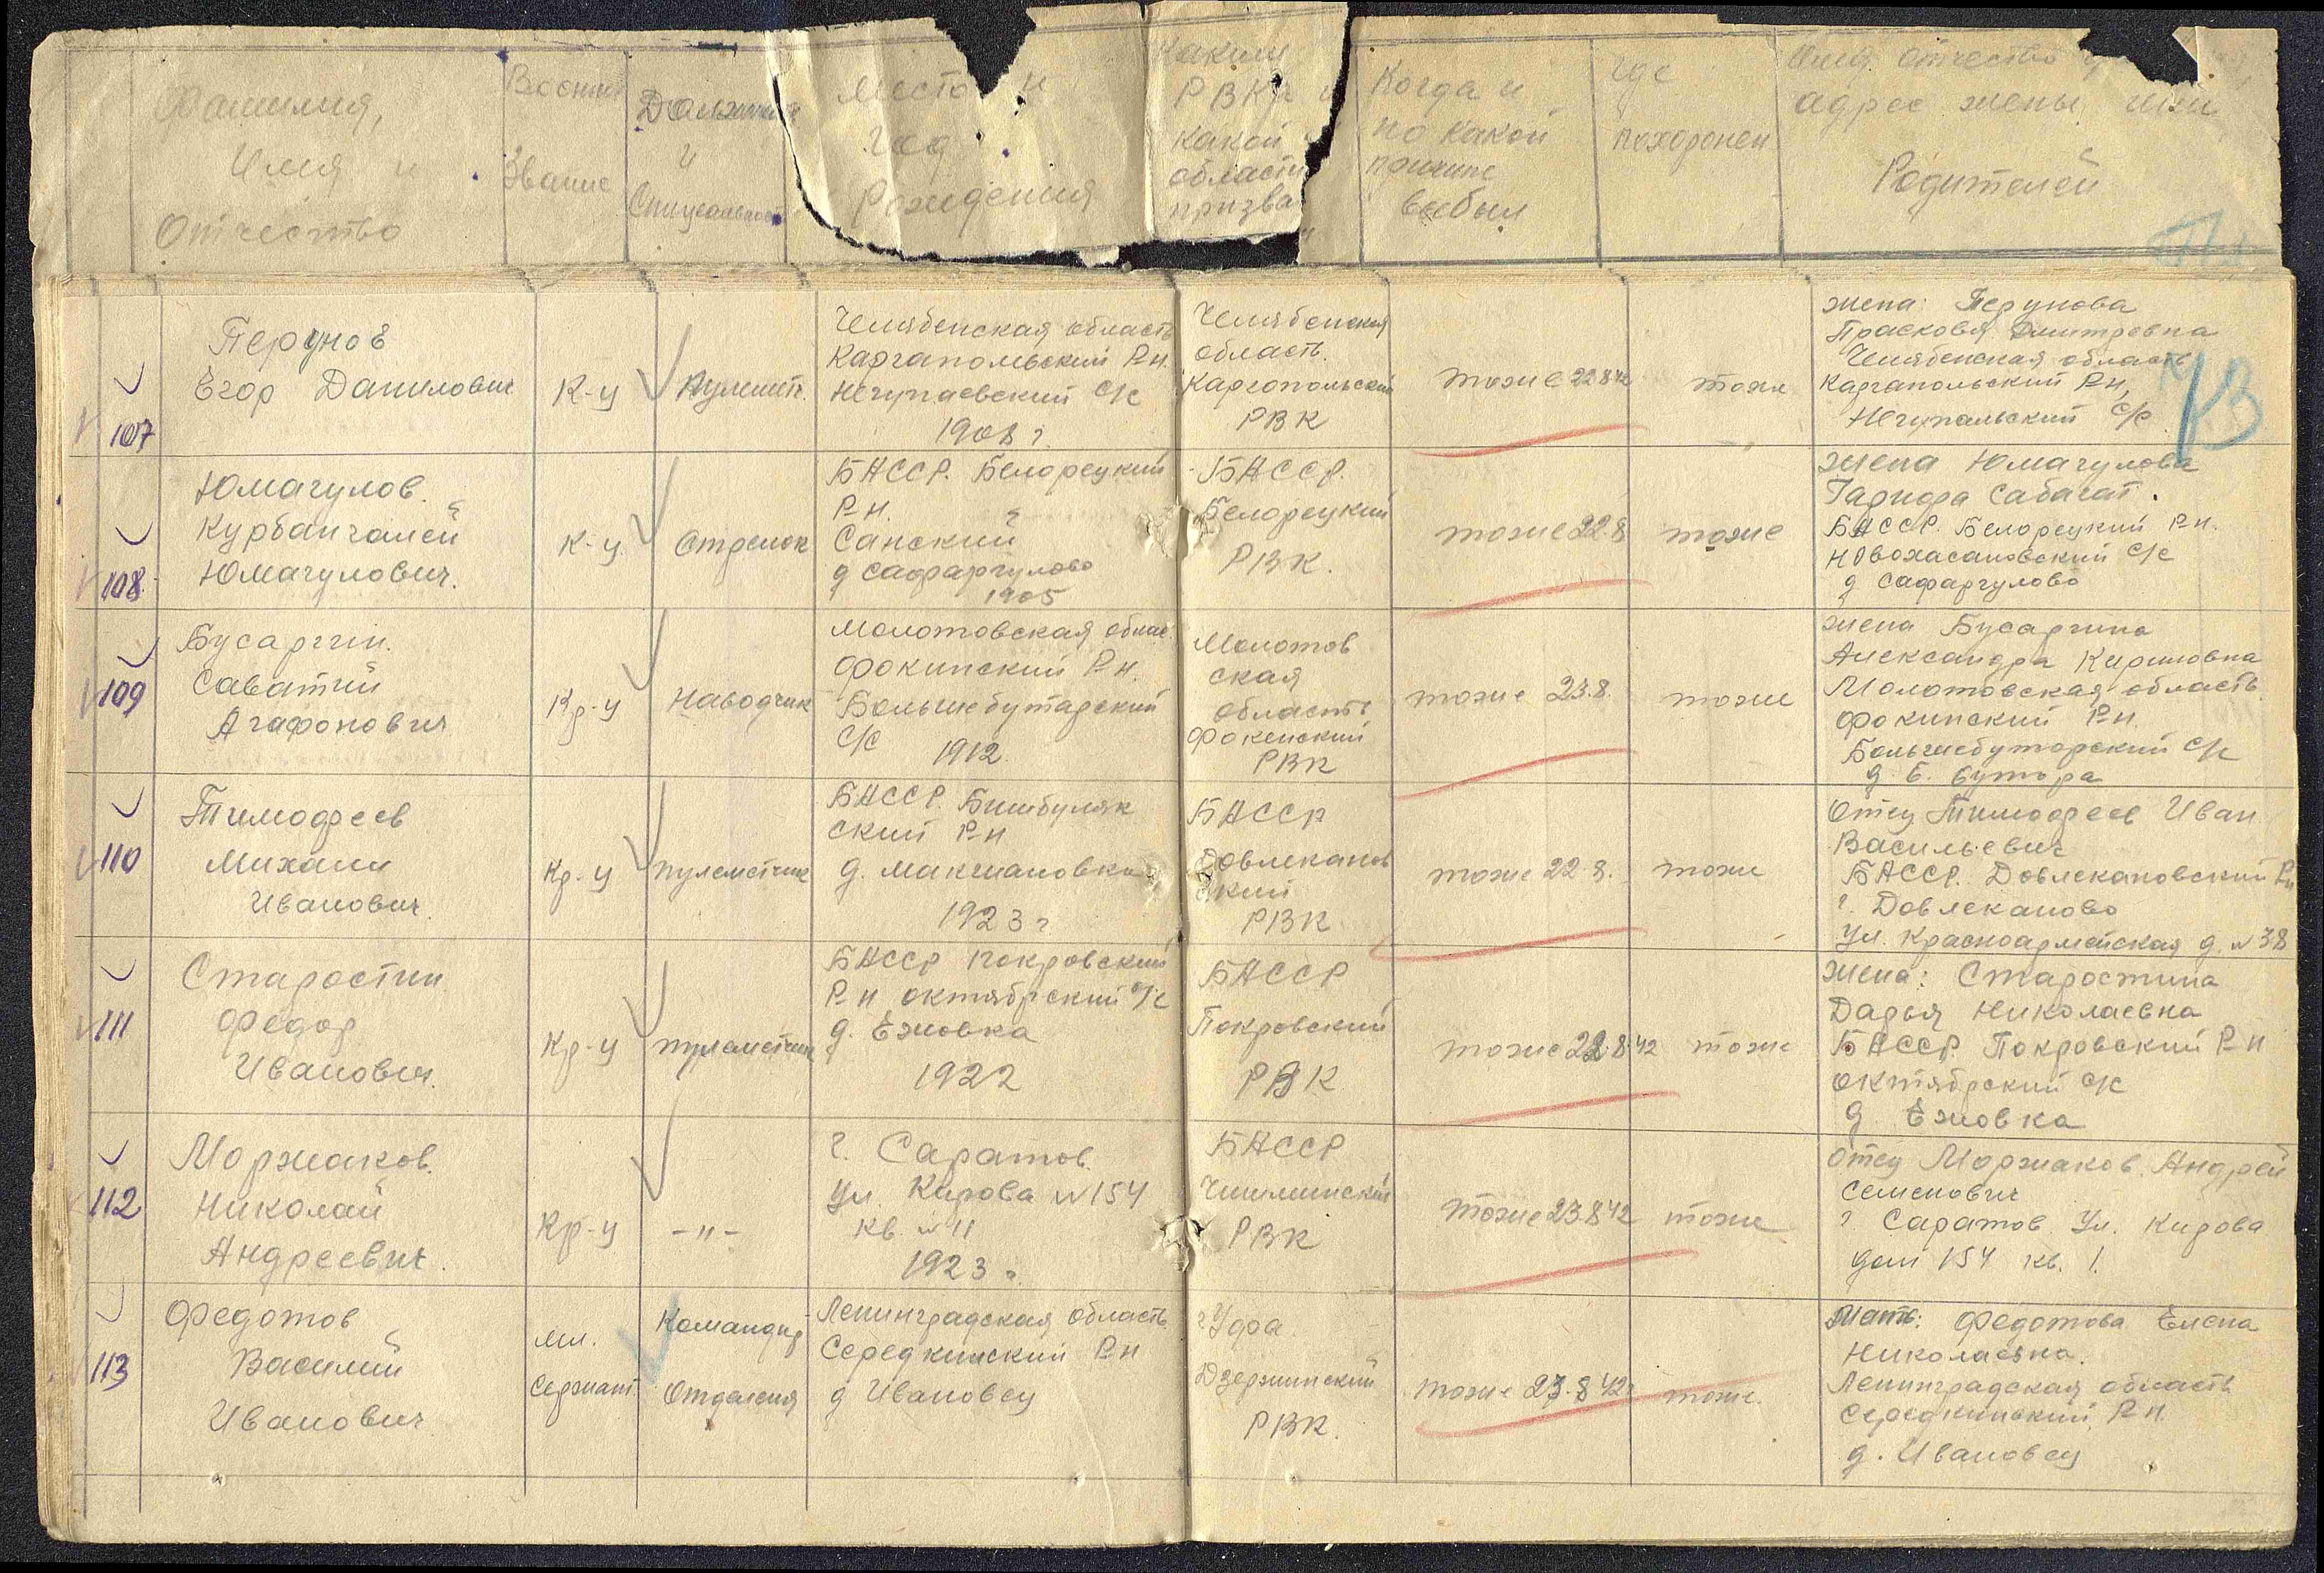 Фамилия,
Имя и
Отчество
Звание
и
Место и
год
Рождения
РВК
какой
области
призва
Когда и
по какой
причине
выбыл
где
похоронен
адрес жены или
Родителей
73
107
Перунов
Егор Данилович
К-ц
Пулеметч.
Челябенская область
Каргапольский Р-н.
Нечунаевский с/с
1908 г.
Челябенская
область.
Каргопольский
РВК
тоже 22 8 42
тоже
жена: Перунова
Прасковья Дмитревна
Челябенская область
Каргапольский Р-н,
с/с
108
Юмагулов.
Курбангалей
Юмагулович.
К-ц
Стрелок
БАССР. Белорецкий
Р-н.
Санский
д Сафаргулово
1905
БАССР.
Белорецкий
РВК.
тоже 22.8
тоже
жена Юмагулова
БАССР. Белорецкий Р-н.
Новохасановский с/с
д Сафаргулово
109
Бусаргин.
Саватий
Агафонович
Кр-ц
Наводчик
Молотовская облас.
Фокинский Р-н.
Большебутарский
с/с 1912.
Молотов
ская
область
Фокенский
РВК
тоже 23.8.
тоже
жена Бусаргина
Александра Кириловна
Молотовская область
Фокинский Р-н.
Большебуторский с/с
д. Б. Бутора
110
Тимофеев
Михаил
Иванович.
Кр-ц
пулеметчик
БАССР. Бишбуляк
ский Р-н
д. Макшановка
1923 г
БАССР
Довлеканов
ский
РВК
тоже 22.8.
тоже
Отец Тимофеев Иван
Васильевич
БАССР. Довлекановский Р-н
г. Довлеканово
Ул. Красноармейская д. №38
111
Старостин
Федор
Иванович.
Кр-ц
пулеметчик
БАССР Покровский
Р-н октябрский с/с
д. Ежовка
1922
БАССР
Покровский
РВК
тоже 22.8.42
тоже
жена: Старостина
Дарья Николаевна
БАССР. Покровский Р-н
октябрский с/с
д. Ежовка
112
Моржаков.
Николай
Андреевич.
Кр-ц
-"-
г. Саратов.
Ул. Кирова №154
кв. №11
1923 г.
БАССР
Чишминский
РВК
тоже 23 8 42
тоже
отец Моржаков Андрей
Семенович
г. Саратов Ул. Кирова
дом 154 кв. 1.
113
Федотов
Василий
Иванович
мл.
Сержант
Командир
Отделения
Ленинградская область
Середкинский Р-н
д Ивановец
г Уфа.
Дзержинский
РВК.
тоже 23.8 42г
тоже.
Мать: Федотова Елена
Николаевна.
Ленинградская область
Середкинский Р-н.
д. Ивановец